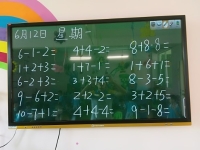 6月12日 星期一
6-1-2= 4+4-2= 8+8-8=
1+2+3= 1+7-1= 1+6+1=
6-2+3= 3+3+4= 8-3-5=
9-6+2= 2+2-2= 3+2+5=
10-7+1= 4+4-4= 9-1-8=